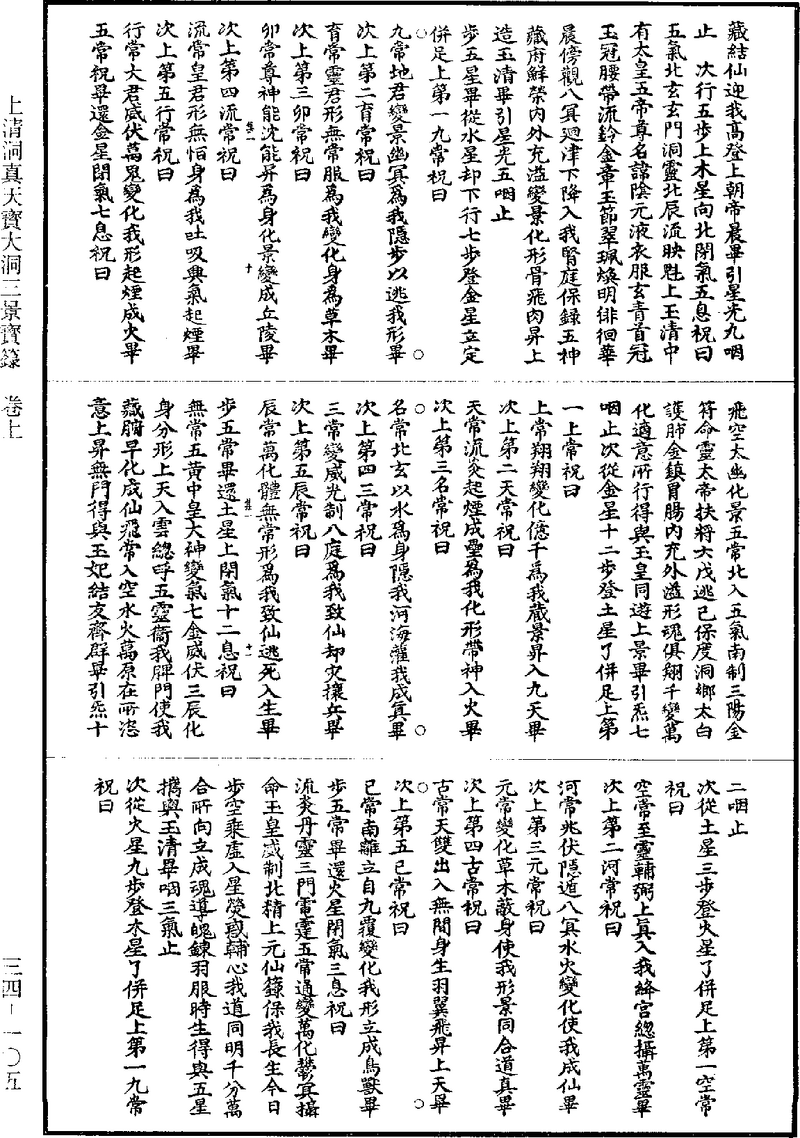 藏結仙迎我高登上朝帝晨畢引星光九咽
止　次行五步上木星向北閉氣五息祝曰
五氣北玄玄門洞靈北辰流映魁上玉清中
有太皇五帝尊名諱陰元液衣服玄青首冠
玉冠腰帶流鈴金章玉節翠珮煥明徘徊華
晨傍觀八冥迴津下降入我腎庭保録五神
藏府鮮榮內外充溢變景化形骨飛肉昇上
造玉清畢引星光五咽止
步五星畢從水星却下行七步登金星立定
併足上第一九常祝曰
九常地君變景幽冥爲我隱步以逃我形畢
次上第二育常祝曰
育常靈君形無常服爲我變化身爲草木畢
次上第三卯常祝曰
卯常尊神能沈能昇爲身化景變成丘陵畢
次上第四流常祝曰
流常皇君形無怕身爲我吐吸與氣起煙畢
次上第五行常祝曰
行常大君威伏萬鬼變化我形起煙成火畢
五常祝畢還金星閉氣七息祝曰
飛空太幽化景五常北入五氣南制三陽金
符命靈太帝扶將大戊逃已保度洞鄉太白
護肺金鎮胃腸內充外溢形魂俱翔千變萬
化適意所行得與玉皇同遊上景畢引炁七
咽止次從金星十二步登土星了併足上第
一上常祝曰
上常翔翔變化億千爲我藏景昇入九天畢
次上第二天常祝曰
天常流炎起煙成壘爲我化形帶神入火畢
次上第三名常祝曰
名常北玄以水爲身隱我河海灌我成真畢
次上第四三常祝曰
三常變威光制八庭爲我致仙却灾攘兵畢
次上第五辰常祝曰
辰常萬化體無常形爲我致仙逃死入生畢
步五常畢還土星上閉氣十二息祝曰
無常五黃中皇大神變氣七金威伏三辰化
身分形上天入雲總呼五靈衞我脾門使我
藏腑早化成仙飛常入空水火萬原在所恣
意上昇無門得與玉妃結友齊群畢引炁十
二咽止
次從土星三步登火星了併足上第一空常
祝曰
空常至靈輔弼上真入我絳宮總攝萬靈畢
次上第二河常祝曰
河常兆伏隱遁八冥水火變化使我成仙畢
次上第三元常祝曰
元常變化草木蔽身使我形景同合道真畢
次上第四古常祝曰
古常天雙出入無間身生羽翼飛昇上天畢
次上第五已常祝曰
已常南離立自九覆變化我形立成鳥獸畢
步五常畢還火星閉氣三息祝曰
流炎丹靈三門電霆五常通變萬化欝冥攝
命玉皇威制北精上元仙籙保我長生今日
步空乘虛入星熒惑輔心我道同明千分萬
合所向立成魂導魄鍊羽服時生得與五星
攜與玉清畢咽三氣止
次從火星九步登木星了併足上第一九常
祝曰
上清洞真天寶大洞三景寶籙　卷上
三四－一〇五